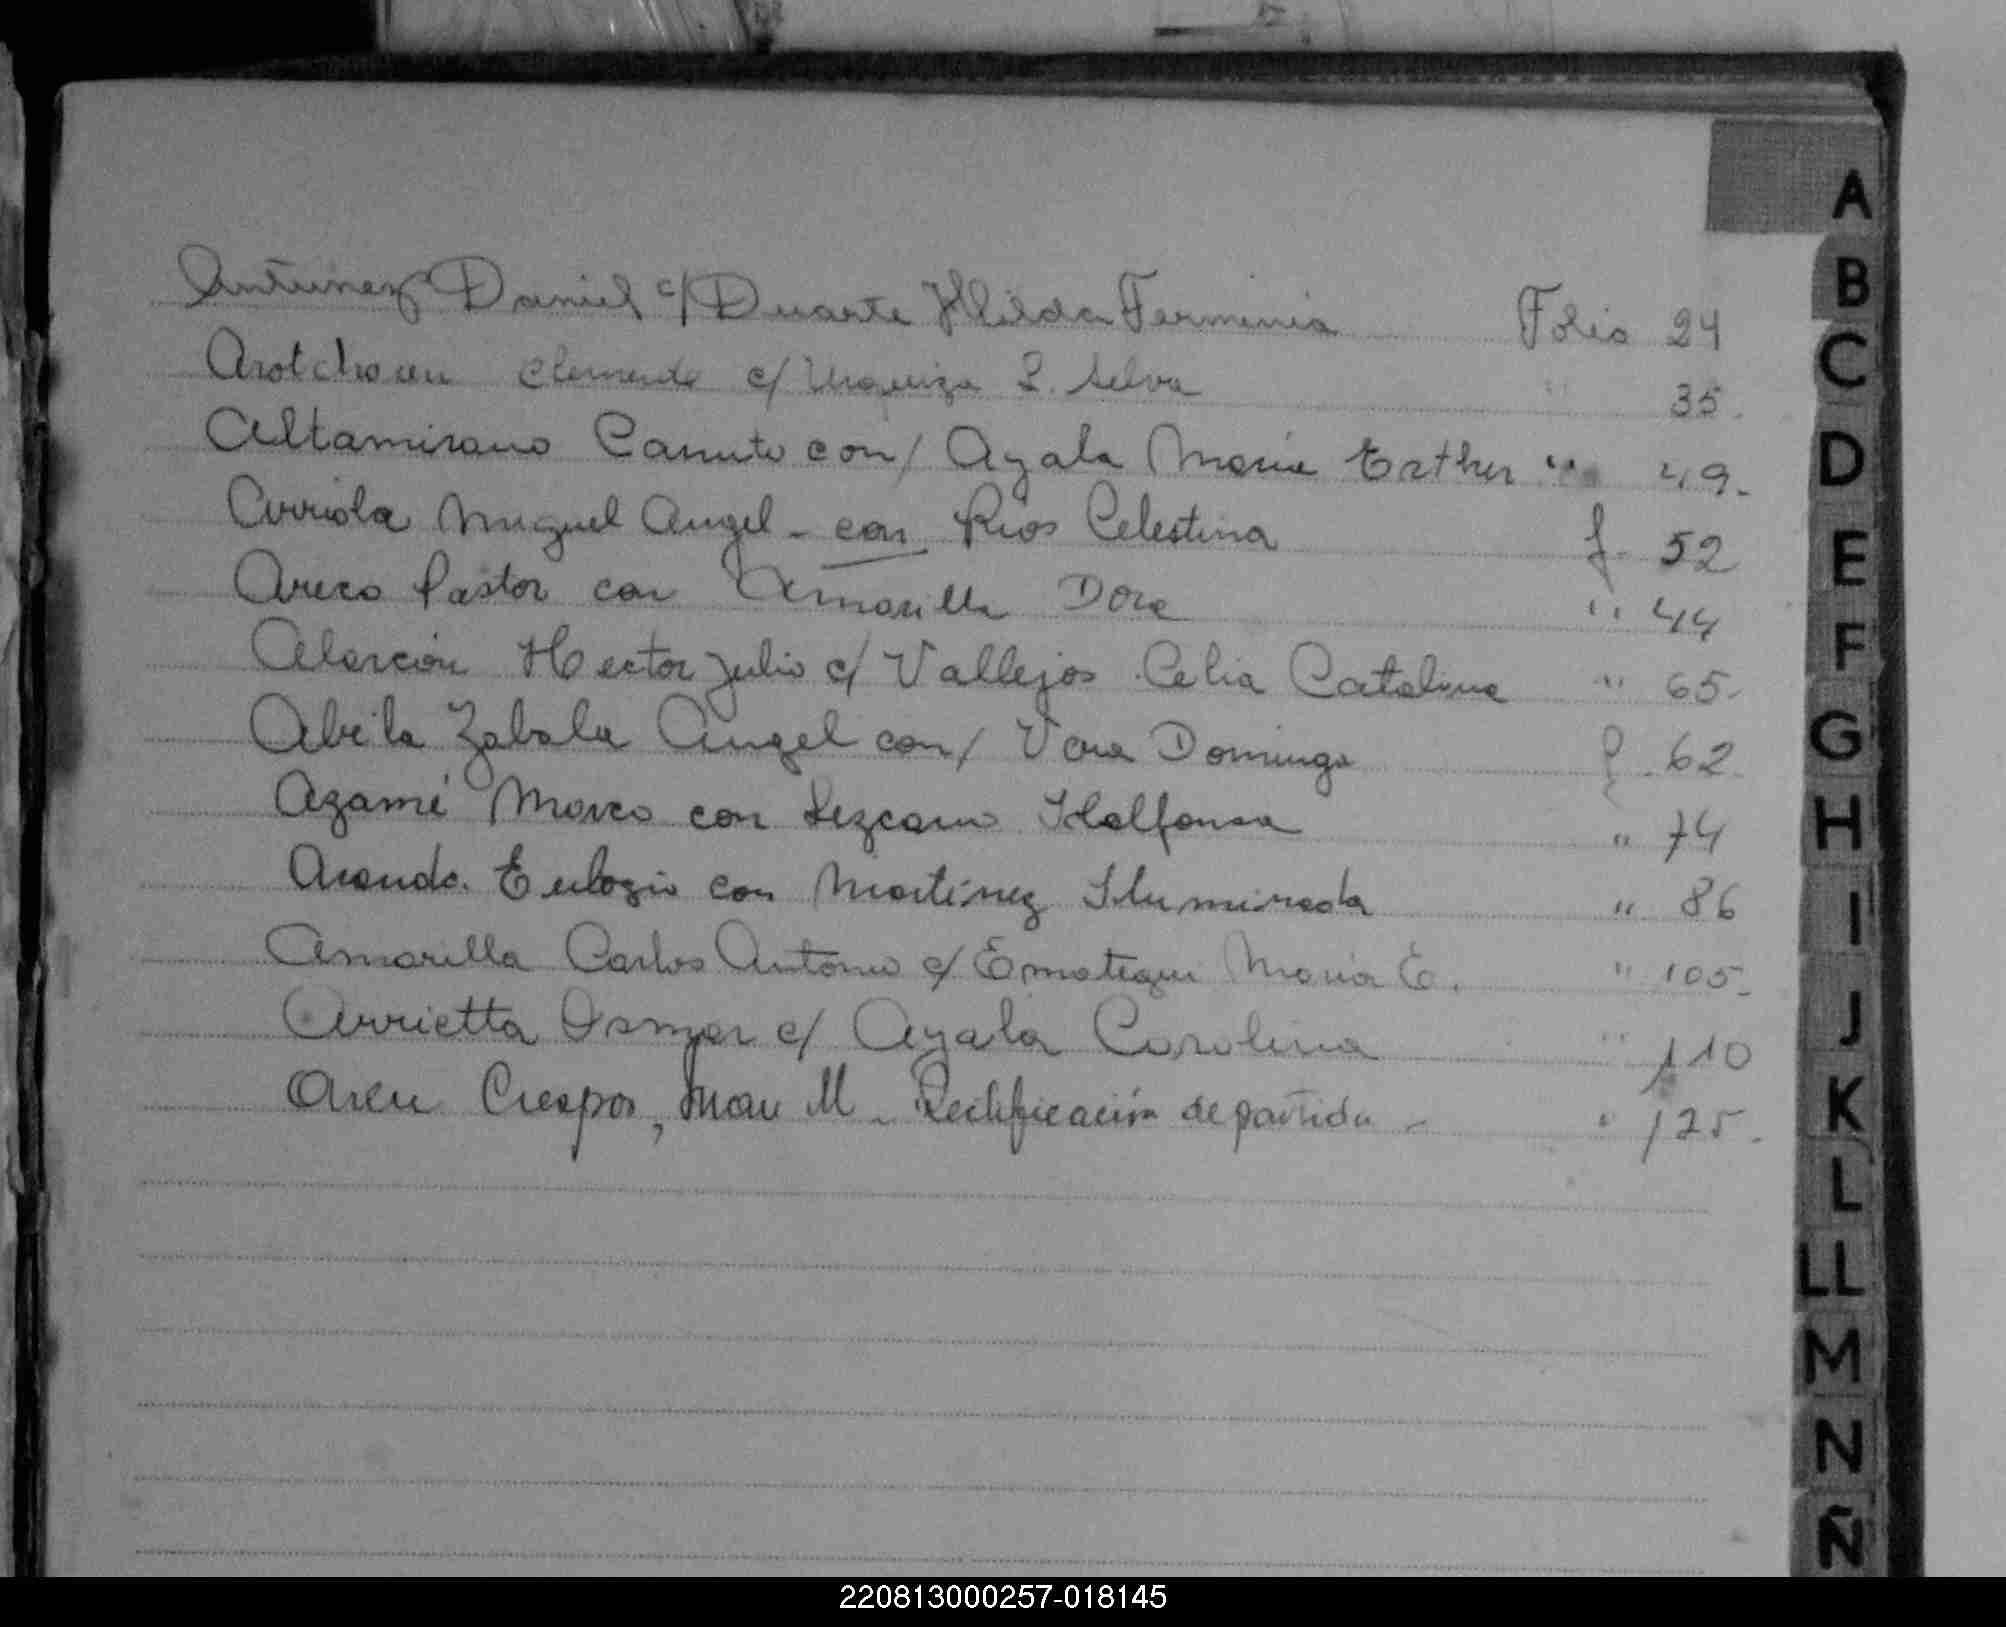 A
Antunez Daniel c/ Duarte Hilda Ferminia Folio 24
B
Arotcharen Clemente c/ Urquiza S. Selva " 35.
C
Altamirano Canuto con/ Ayala Maria Esther " 49.
D
Arriola Miguel Angel - con Rios Celestina f. 52
E
Areco Pastor con Amarilla Dora " 44
F
Alarcón Hector Julio c/ Vallejos Celia Catalina " 65.
G
Abila Zabala Angel con/ Vera Dominga f. 62.
H
Azamé Marco con Lezcano Ildalfonsa " 74
I
Aranda. Eulogio con Martínez Iluminada " 86
Amarilla Carlos Antonio c/ Maria E. " 105.
J
Arrietta Osmar c/ Ayala Carolina " 110
K
Crespos, Juan M. Rectificación de partida - " 125.
L
LL
M
N
Ñ
220813000257-018145